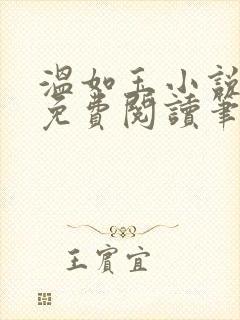 溫如玉小說
免費閱讀筆
王賓宜